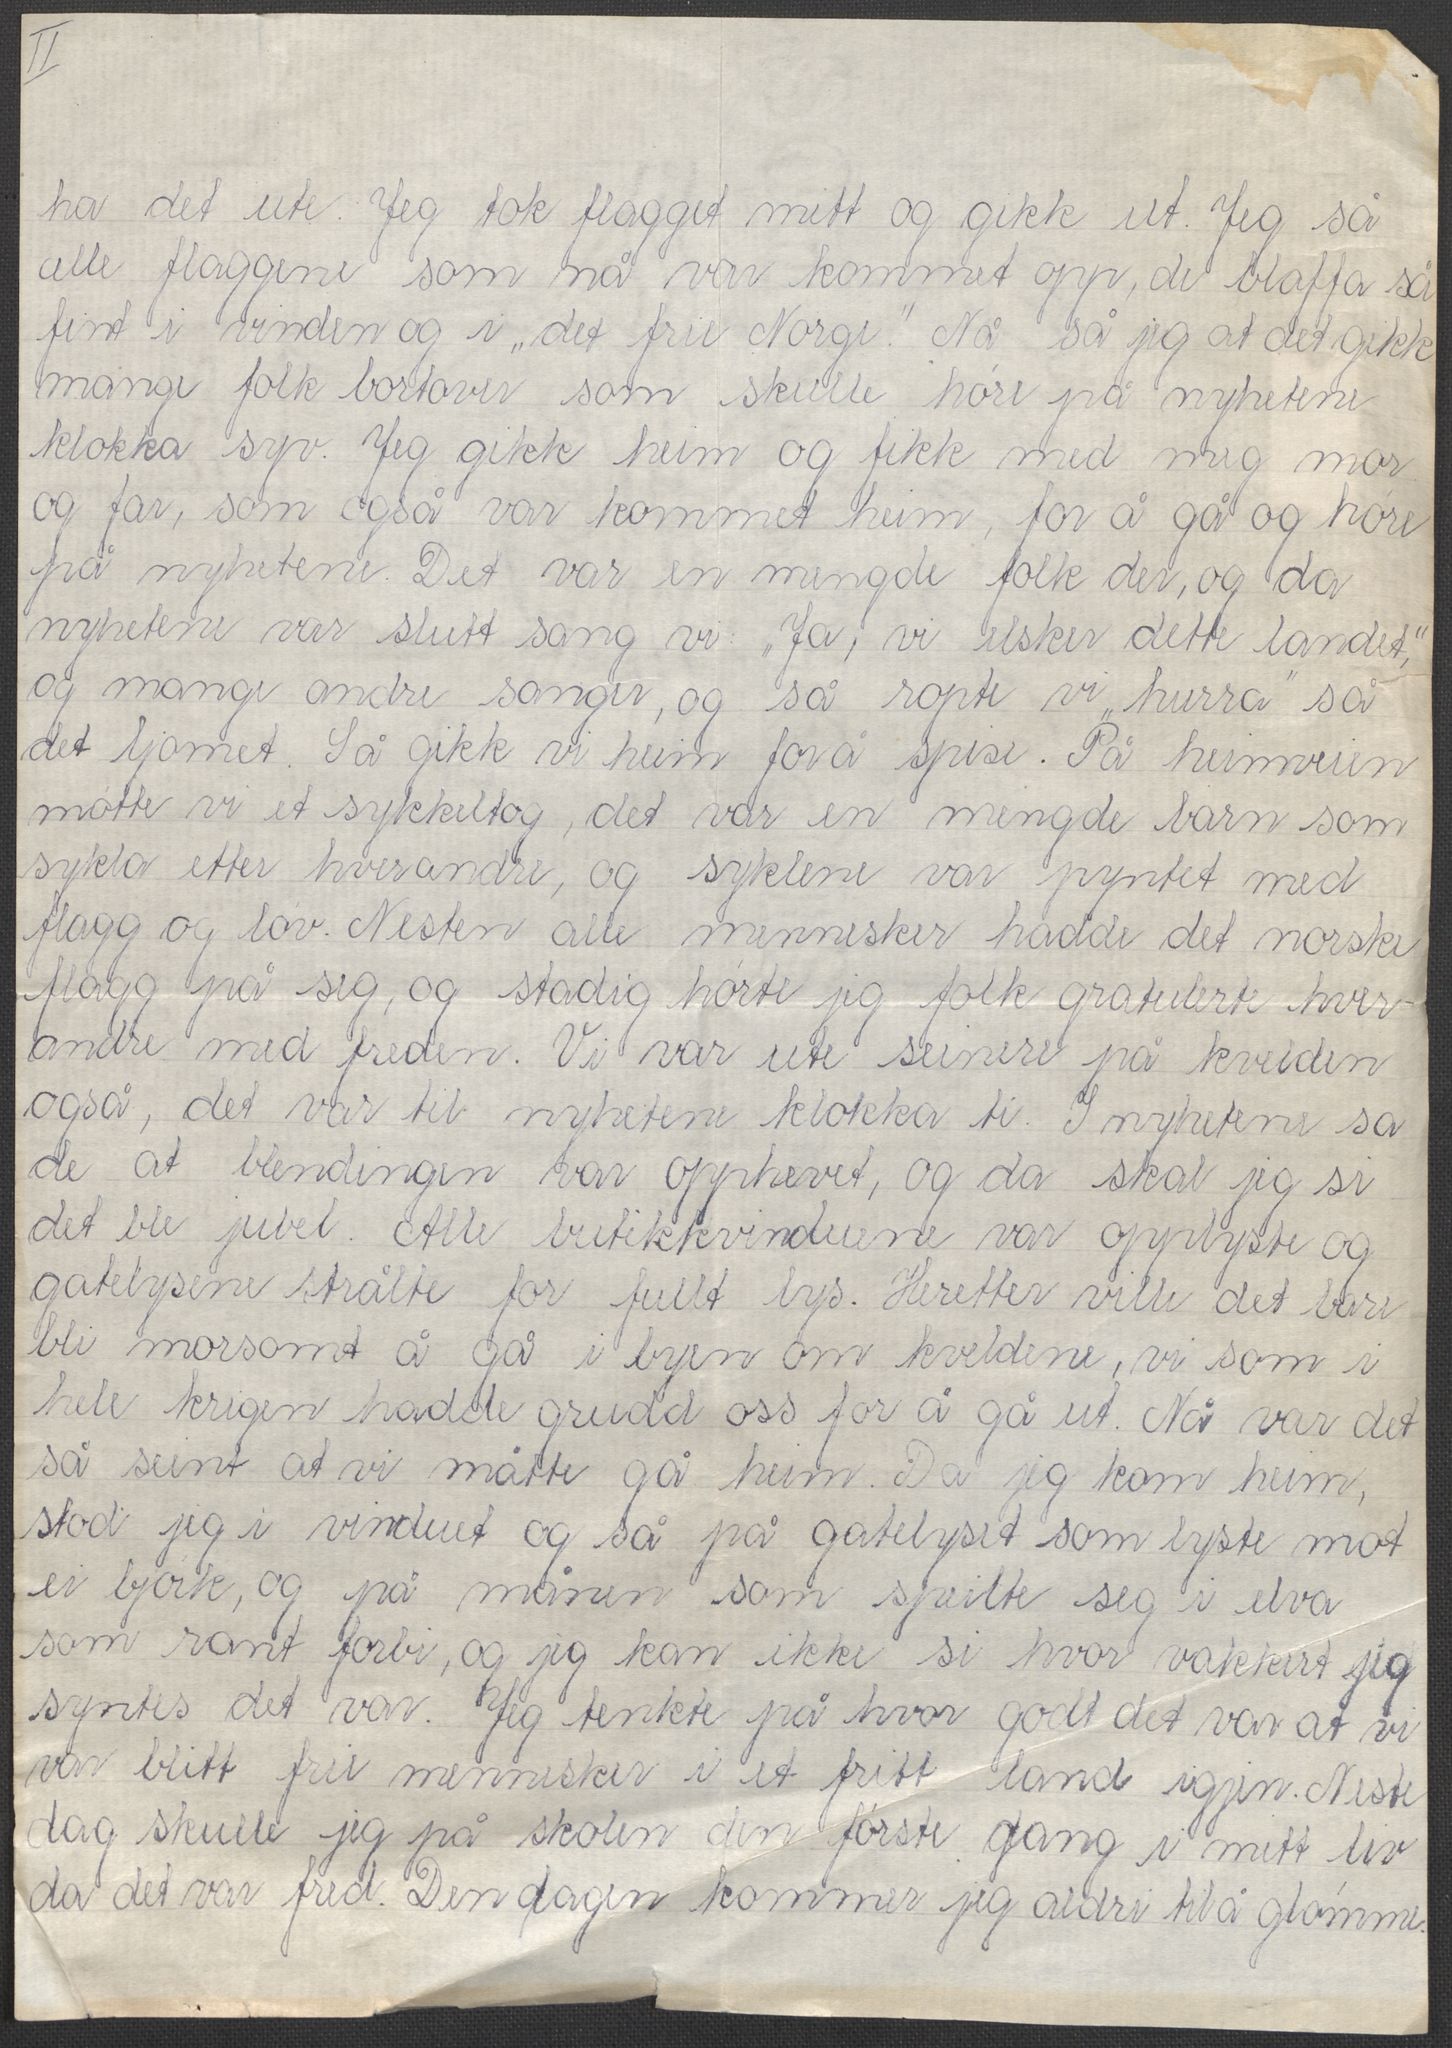 II
ha det ute. Jeg tok flagget mitt og gikk ut. Jeg så
alle flaggene som nå var kommet opp, de blaffa så
fint i vinden og i „det frie Norge." Nå så jeg at det gikk
mange folk bortover som skulle høre på nyhetene
klokka syv. Jeg gikk heim og fikk med meg mor
og far, som også var kommet heim, for å gå og høre
på nyhetene. Det var en mengde folk der, og da
nyhetene var slutt sang vi: „Ja, vi elsker dette landet,"
og mange andre sanger, og så ropte vi „hurra" så
det ljomet. Så gikk vi heim forå spise. På heimveien
møtte vi et sykkeltog, det var en mengde barn som
sykla etter hverandre, og syklene var pyntet med
flagg og løv. Nesten alle mennesker hadde det norske
flagg på seg, og stadig hørte jeg folk gratulerte hver-
andre med freden. Vi var ute seinere på kvelden
også, det var til nyhetene klokka ti. I nyhetene sa
de at blendingen var opphevet, og da skal jeg si
det ble jubel. Alle butikkvinduene var opplyste og
gatelysene strålte for fullt lys. Heretter ville det bare
bli morsomt å gå i byen om kveldene, vi som i
hele krigen hadde grudd oss for å gå ut. Nå var det
så seint at vi måtte gå heim. Da jeg kom heim,
stod jeg i vinduet og så på gatelyset som lyste mot
ei bjørk, og på månen som speilte seg i elva
som rant forbi, og jeg kan ikke si hvor vakkert jeg
syntes det var. Jeg tenkte på hvor godt det var at vi
var blitt frie mennesker i et fritt land igjen. Neste
dag skulle jeg på skolen den første gang i mitt liv
da det var fred. Den dagen kommer jeg aldri til å glømme.